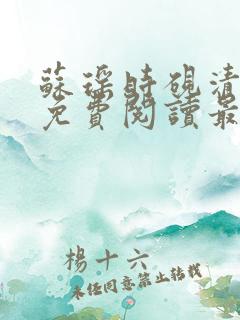 蘇瑤時硯清
免費閱讀最
楊十六
未任同意禁止轉載